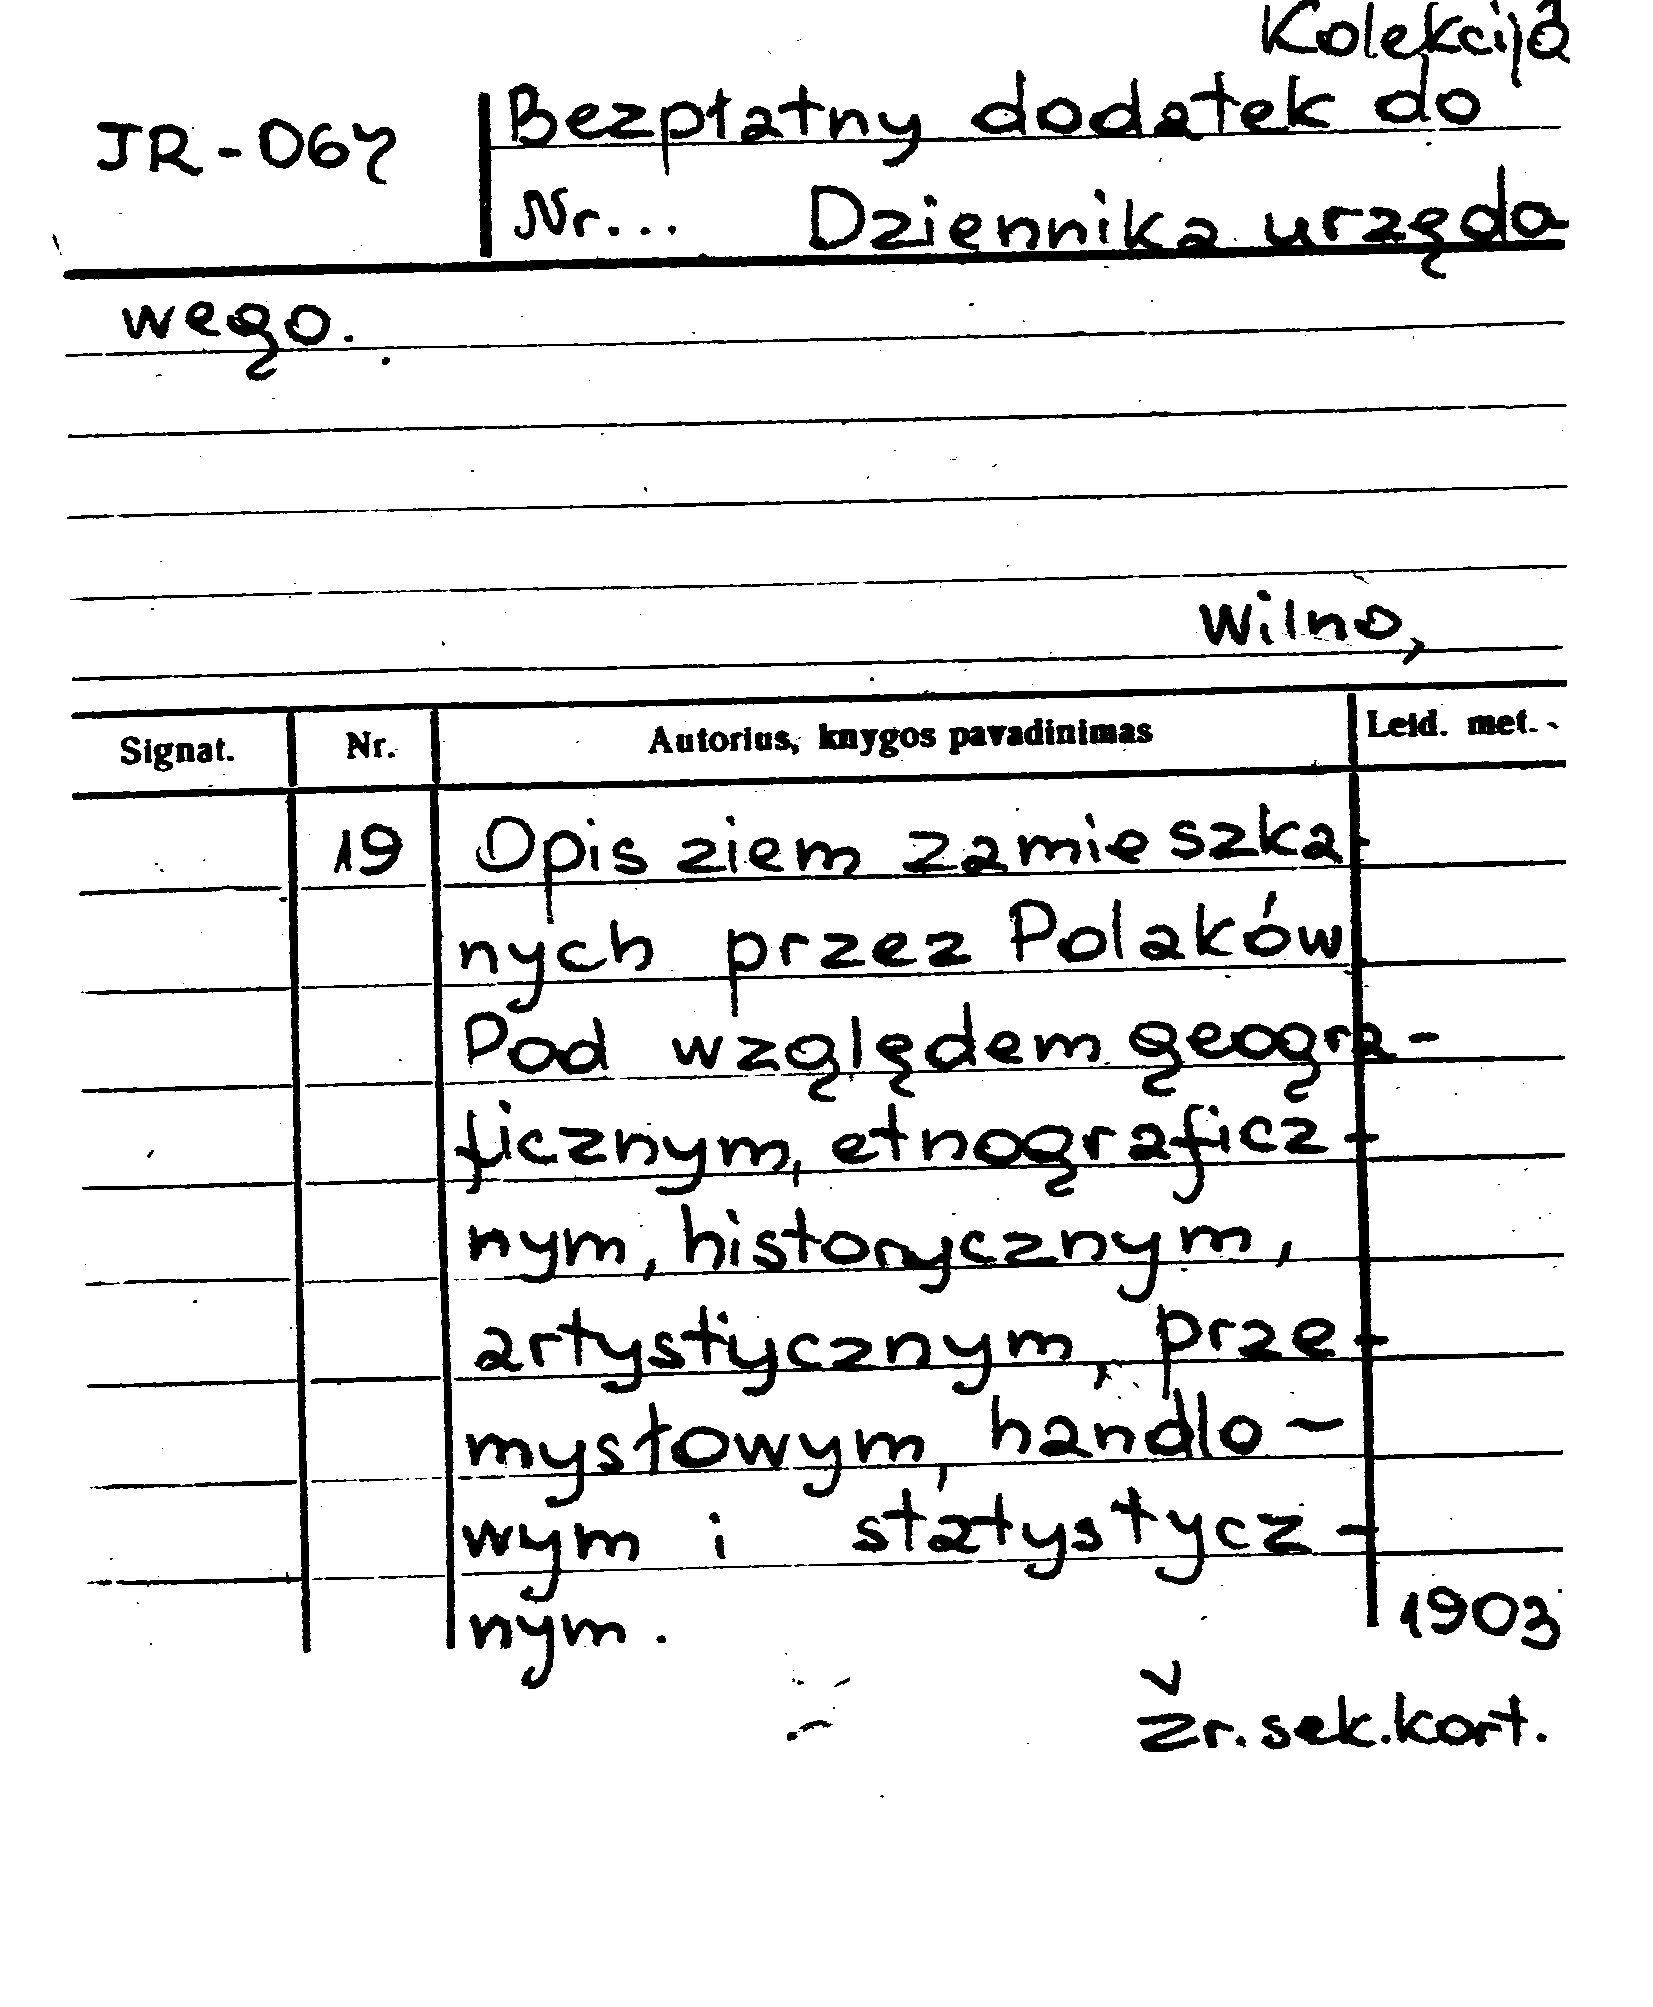 Kolekcija
JR-067 Bezpłatny dodatek do
Nr... Dziennika urzędo-
wego.
Wilno,
Signat. Nr. Autorius, knygos pavadinimas Leid. met.
19 Opis ziem zamieszka-
nych przez Polaków
Pod względem geogra-
ficznym, etnograficz-
nym, historycznym,
artystycznym, prze-
mysłowym, handlo-
wym i statystycz-
nym. 1903
Žr. sek. kort.